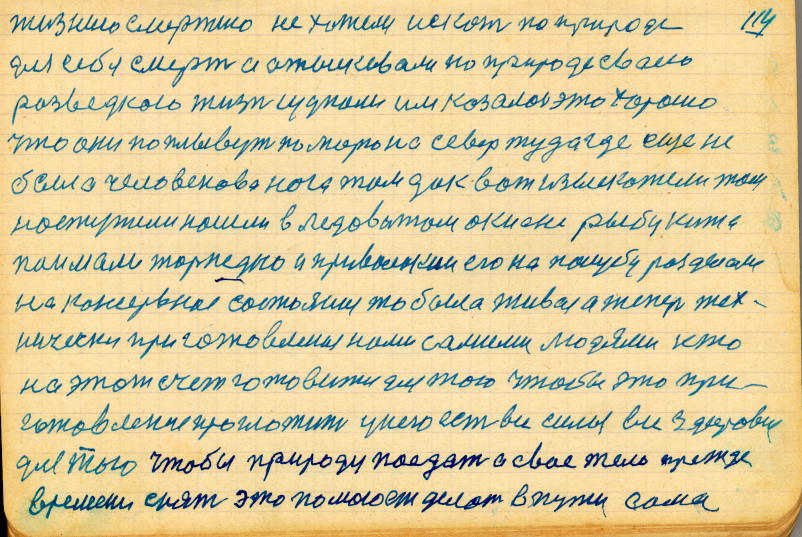 жизнию смертию не хотели искат по природе 114
для себя смерт а отыскивали по природе своею
разведкою жизн идполи им казалос это хорошо
что они поплывут по морю на север туда где еще не
была человекова нога там дак вот изыскатели там
настужили нашли в ледовытом окиане рыбу кита
поимали торпедно и приволокли его на палубу разделали
на консервное состояния то была живая а тепер тех-
нически приготовления нами самими людями кто
на этот счет готовити для того чтобы это при-
готовление проглотит у него ест все силы все здоровие
для того чтобы природу поедат а свое тело прежде
времени снят это помогает делат в пути сама